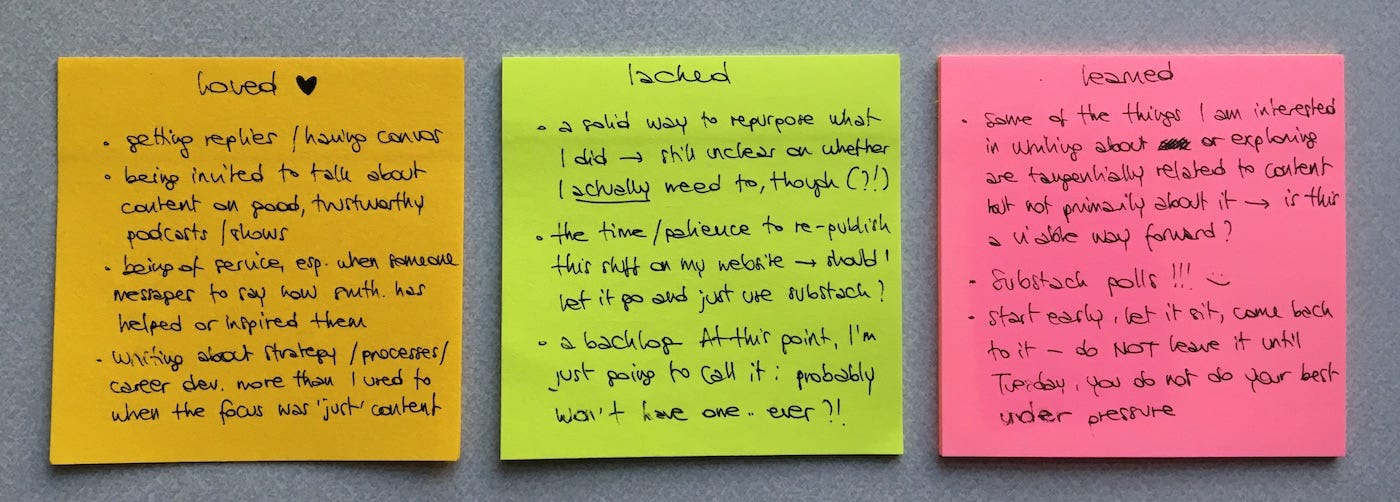 loved ♥
• getting replies / having convos
• being invited to talk about
content on good, trustworthy
podcasts / shows
• being of service, esp. when someone
messages to say how smth. has
helped or inspired them
• writing about strategy / processes /
career dev. more than I used to
when the focus was 'just' content
lacked
• a solid way to repurpose what
I did → still unclear on whether
I actually need to, though (?!)
• the time / patience to re-publish
this stuff on my website → should I
let it go and just use substack?
• a backlog. At this point, I'm
just going to call it: probably
won't have one.. ever?!
learned
• Some of the things I am interested
in writing about or exploring
are tangentially related to content
but not primarily about it → is this
a viable way forward?
• Substack polls !!!
• start early, let it sit, come back
to it – do NOT leave it until
Tuesday, you do not do your best
under pressure